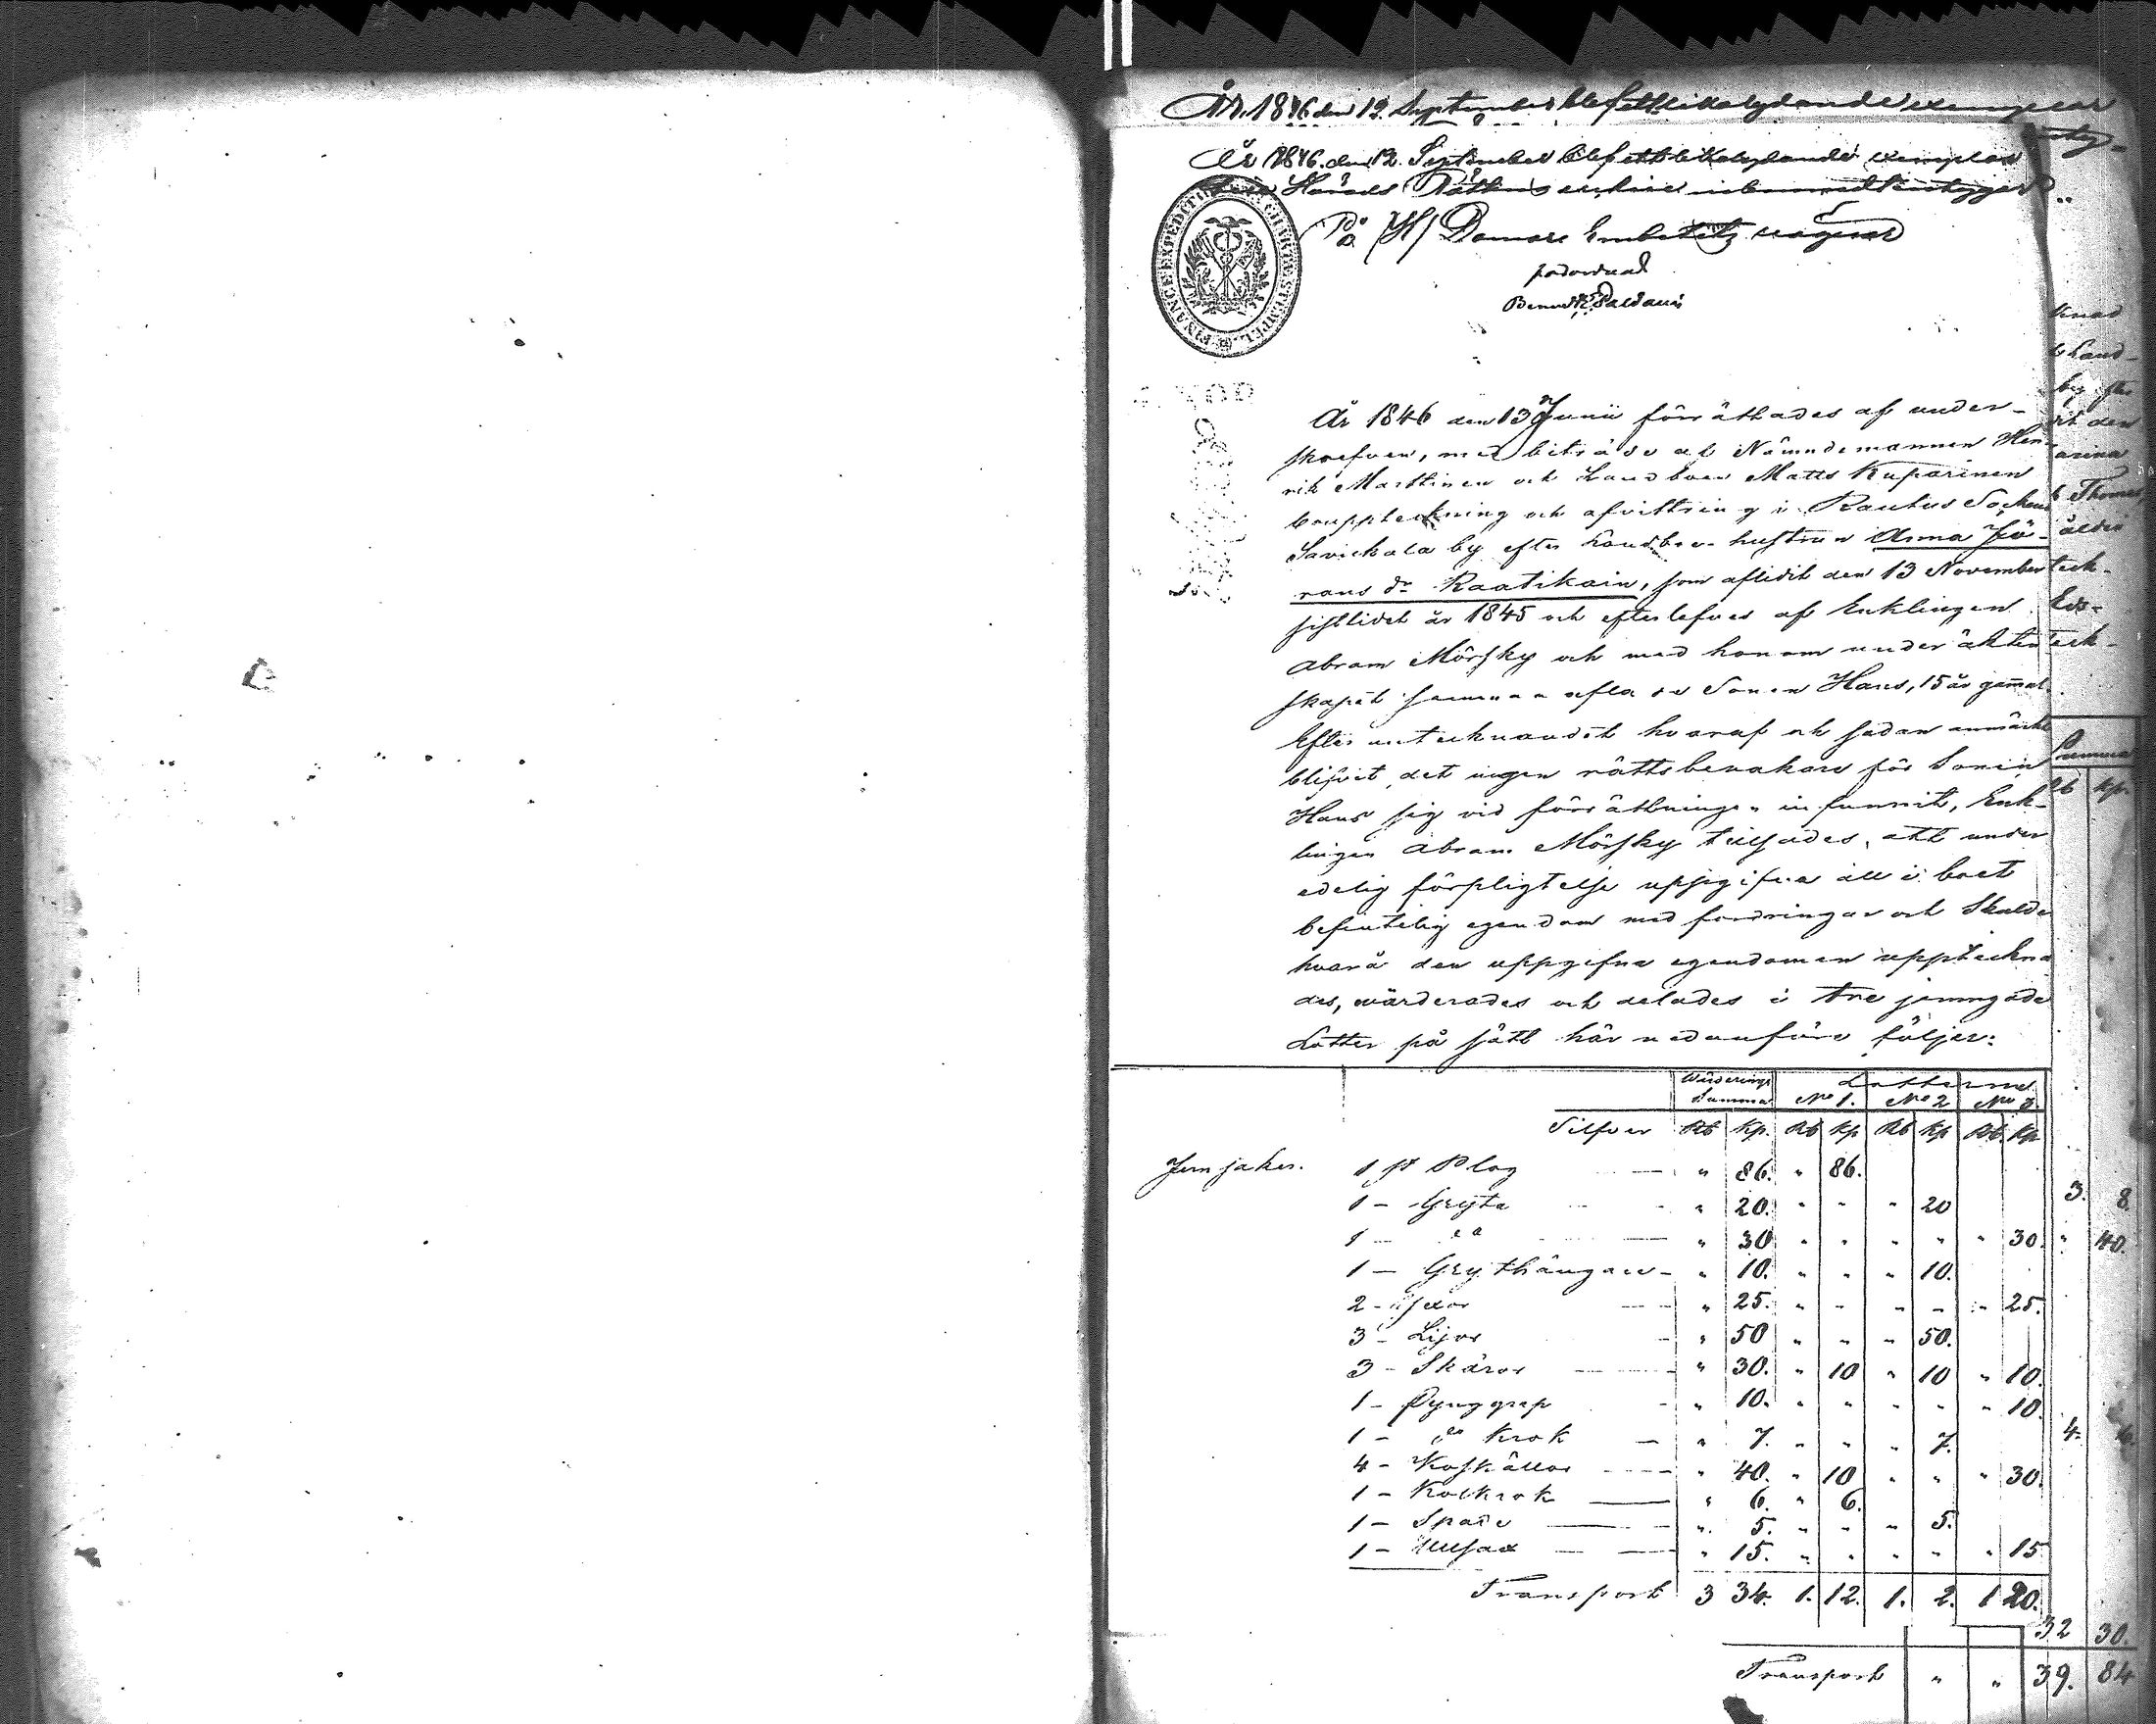 År 1846 den 12 September blef ett lika lydande exemplar
År 1846 den 12 September blef ett lika lydande exemplar
Härads Rättens
På Domare Embetets vägnar
FINANCE EXPEDITIONENS
År 1846 den 13 Junii förrättades af under-
skrefven, med biträde af Nämndemannen Hen-
rik Marttinen och Landboen Matts Kuparinen
bouppteckning och afvittring i Rautus Sockens
Savickala by efter Landboen hustrun Anna Jö-
rans dr Raatikain, som aflidit den 13 November
sistlidet år 1845 och efterlefves af Enklingen
Abram Mörsky och med honom under äkten
skapet samman aflade Sonen Hans, 15 år gammal.
Efter antecknandet hvaraf och sedan anmärkt
blifvit, det ingen rättsbevakare för Sonen
Hans sig vid förrättningen infunnit, Enk-
lingen Abram Mörsky tillsades, att under
edelig förpligtelse uppgifva all i boet
befintelig egendom med fordringar och Skulder
hvarå den uppgifna egendomen uppteckna
des, värderades och delades i tre jemngoda
Lotter på sätt här nedanföre följer:
Värderings Summa Lotterne
No 1. No 2 No 3.
Silfver Rb Kp. Rb Kp Rb Kp Rb Kp
Jernsaker. 1 st Plog " 86. " 86.
1 – Gryta " 20. " " " 20
1 – " 30 " " " " " 30.
1 – Grythängare – " 10. " " " 10.
2 – Yxor " 25. " " " " " 25.
3 – Lijor " 50 " " " 50.
3 – Skäror " 30. " 10 " 10 " 10.
1 – Dynggrep " 10. " " " " " 10
1 – do Krok " 7. " " " 7.
4 – Koskällor " 40. " 10 " " " 30.
1 – Kolkrok " 6. " 6.
1 – Spade " 5. " " " 5.
1 – Ullsax " 15. " " " " " 15
Transport 3 34. 1. 12. 1. 2. 1 20.
Thomas
Summa
Rb kp.
3. 8.
" 40.
4.
32 30.
Transport " " 39. 84